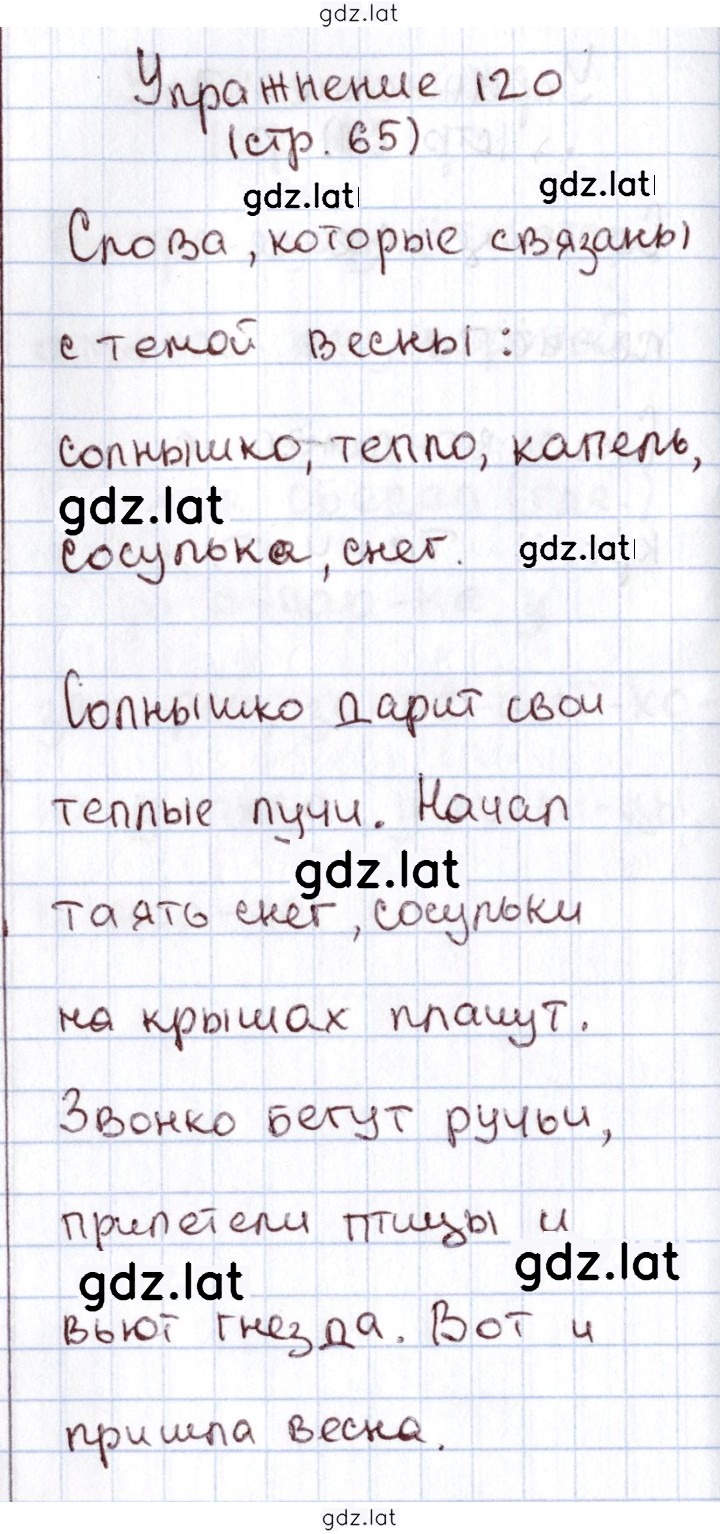 gdz.lat
Упражнение 120
(стр. 65)
gdz.lat gdz.lat
Слова, которые связаны
с темой весны:
солнышко, тепло, капель,
gdz.lat
сосулька, снег. gdz.lat
Солнышко дарит свои
теплые лучи. Начал
gdz.lat
таять снег, сосульки
на крышах плачут.
Звонко бегут ручьи,
прилетели птицы и
gdz.lat gdz.lat
вьют гнезда. Вот и
пришла весна.
gdz.lat